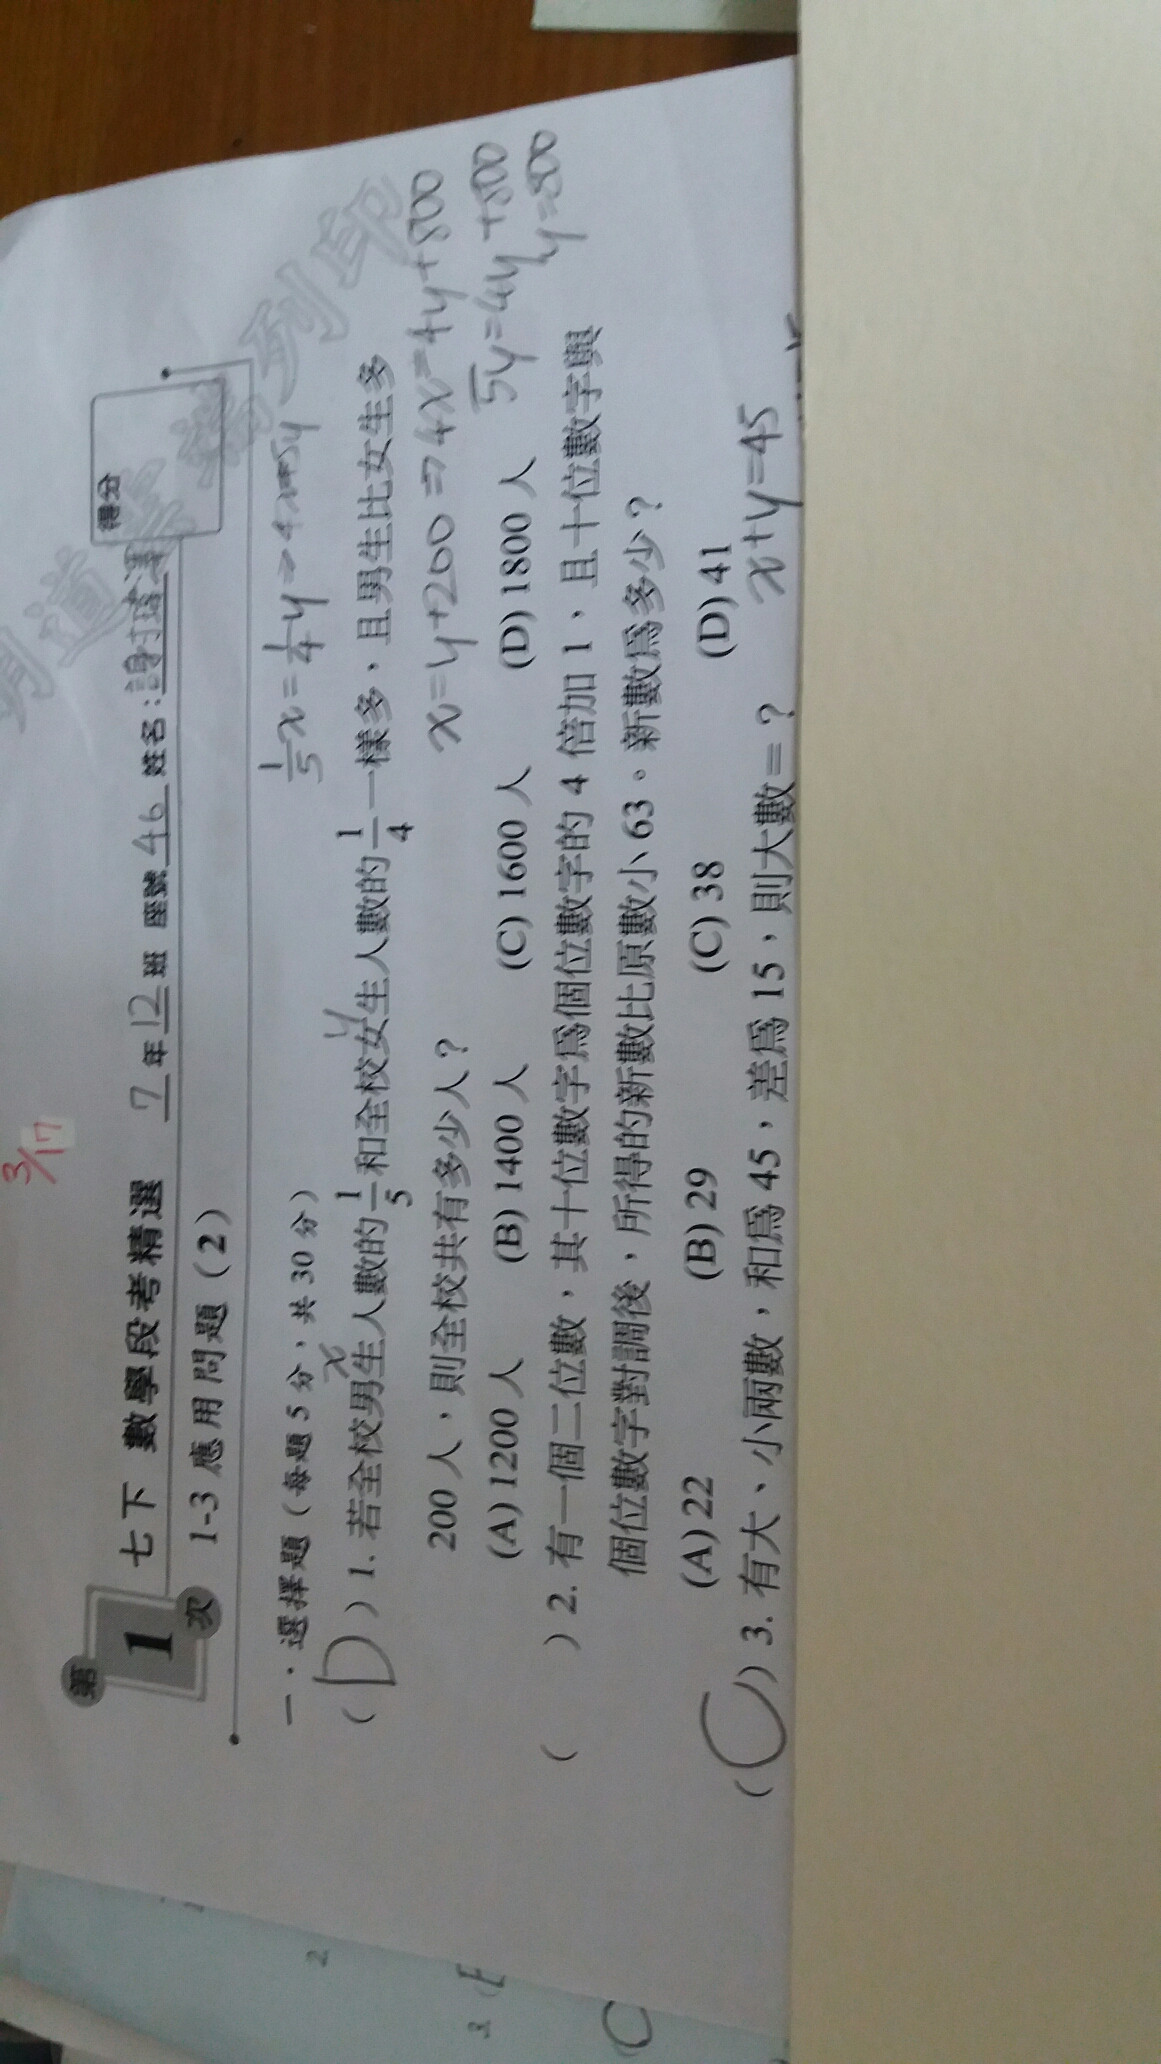 3/17
第1次 七下 數學段考精選 7年12班 座號46 姓名: 得分
1-3 應用問題(2)
一.選擇題(每題5分,共30分)
1/5x=1/4y⇒
x y
(D)1. 若全校男生人數的1/5和全校女生人數的1/4一樣多,且男生比女生多
200人,則全校共有多少人?
x=y+200⇒4x=4y+800
(A)1200人 (B)1400人 (C)1600人 (D)1800人
5y=4y+800
y=800
( )2. 有一個二位數,其十位數字為個位數字的4倍加1,且十位數字與
個位數字對調後,所得的新數比原數小63。新數為多少?
(A)22 (B)29 (C)38 (D)41
(C)3. 有大、小兩數,和為45,差為15,則大數=?
x+y=45
2
3
C